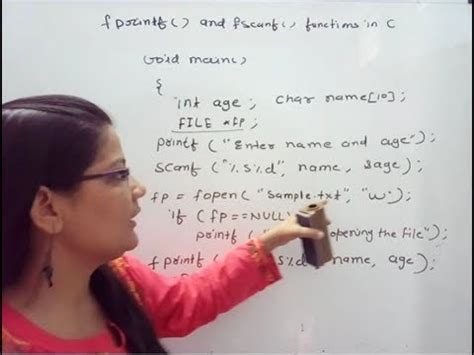 fprintf() and fscanf() functions in C
void main()
{
int age ; char name[10] ;
FILE *fp ;
printf ("Enter name and age");
scanf ("%s%d", name, &age);
fp = fopen ( "Sample.txt", "w");
if ( fp==NULL)
printf ( opening the file");
fprintf s%d name, age);